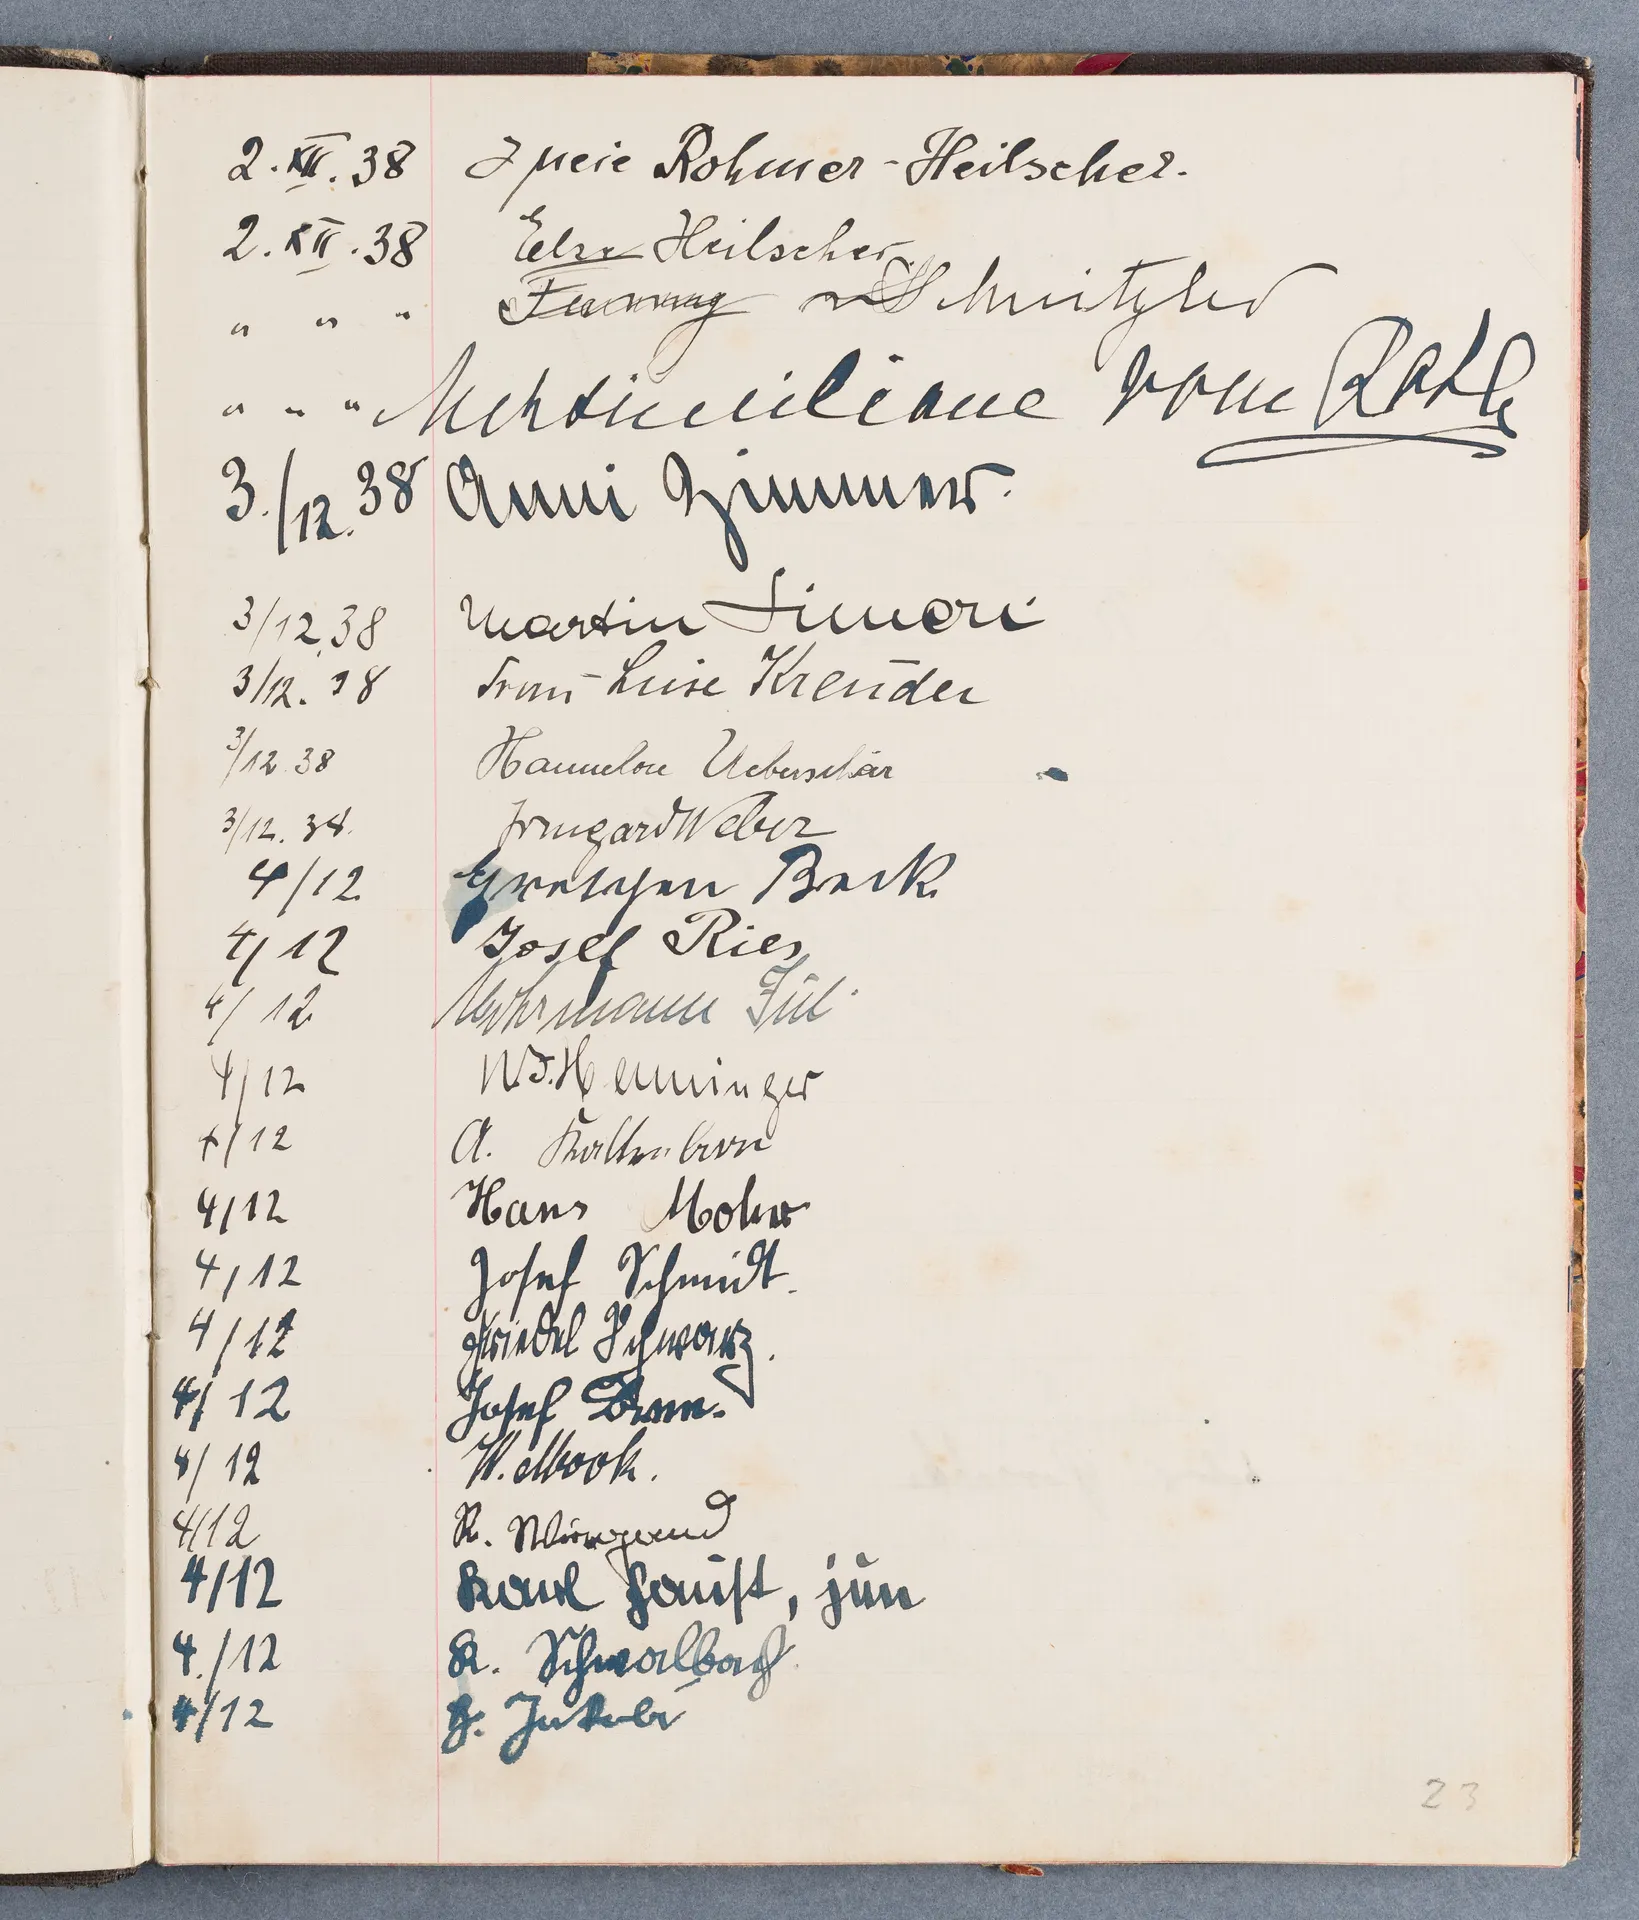 2. XII. 38 Rohmer-Heilscher.
2. XII. 38 Elsa Heilscher.
" " " Schnitzler
" " " Maximiliane vom Rath
3./12. 38 Anni Zimmer.
3/12 38 Martin Simon
3/12. 38 Frau Luise Kreuder
3/12 38 Hannelore Ueberschär
3/12. 38. Irmgard Weber
4/12 Gretchen Beck
4/12 Josef Ries
4/12
4/12 W. F. Henninger
4/12 A. Kaltenborn
4/12 Hans Mohr
4/12 Josef Schmidt.
4/12 Friedel Schwarz.
4/12 Josef
4/12 W. Mook.
4/12 R.
4/12 Karl Faust, jun
4./12 K. Schwalbach
4/12 H. Jakobi
23